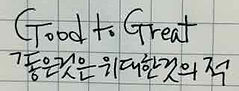 Good to Great
좋은것은 위대한것의 적